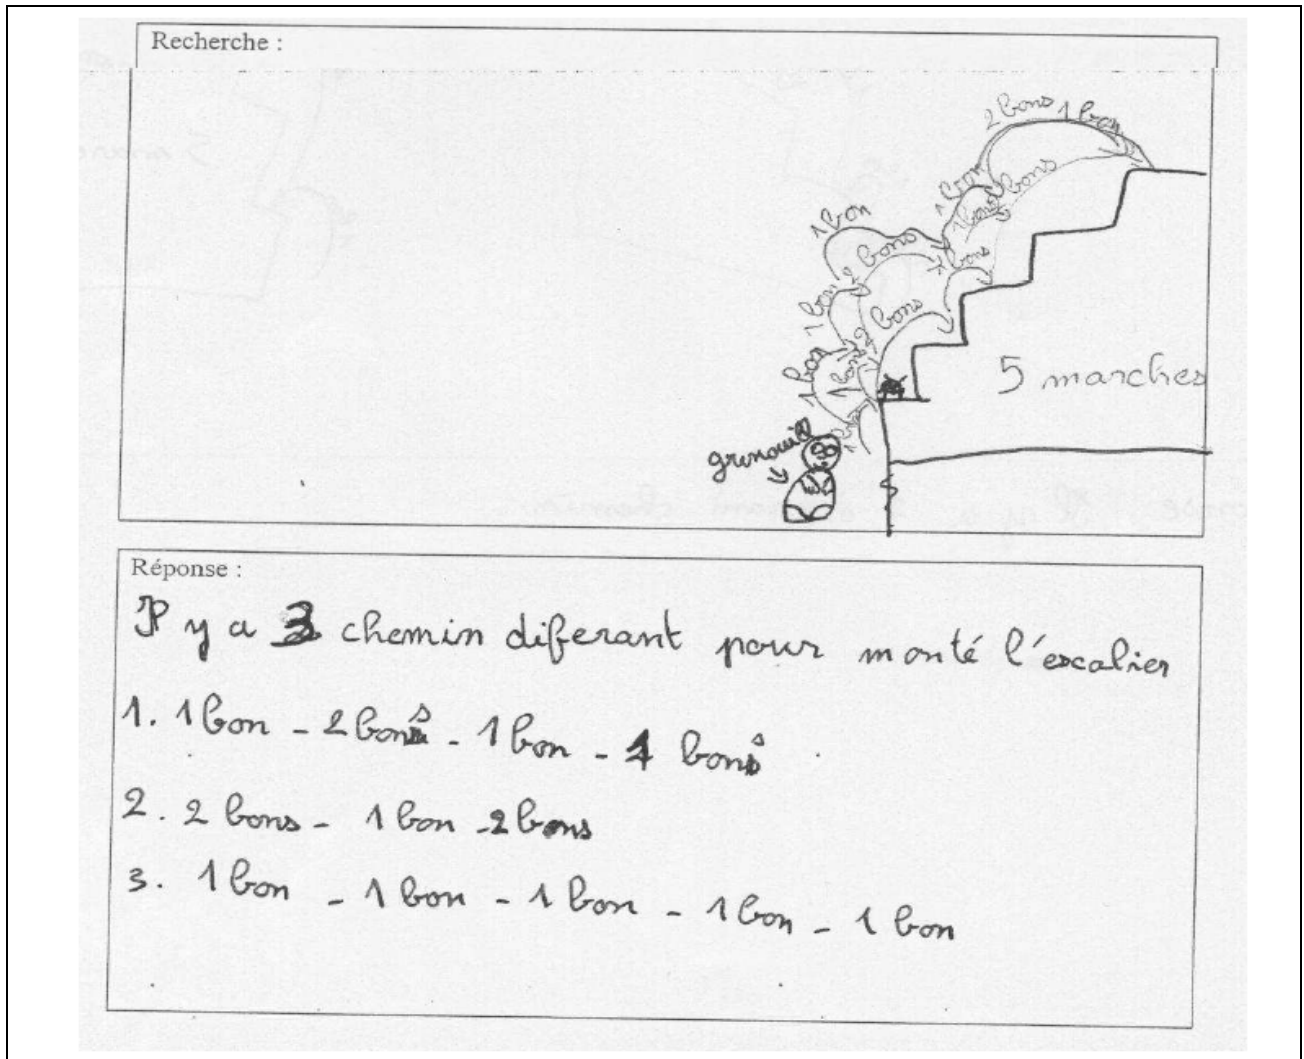 Recherche :
2 bons 1 bon
1 bon
bons
1 bon
1 bon
2 bons
bons
1 bon
2 bons
1 bon
bon
1 bon
5 marches
grenouille
Réponse :
Il y a 3 chemin diferant pour monté l'escalier
1. 1 bon - 2 bons - 1 bon - 1 bons
2. 2 bons - 1 bon - 2 bons
3. 1 bon - 1 bon - 1 bon - 1 bon - 1 bon